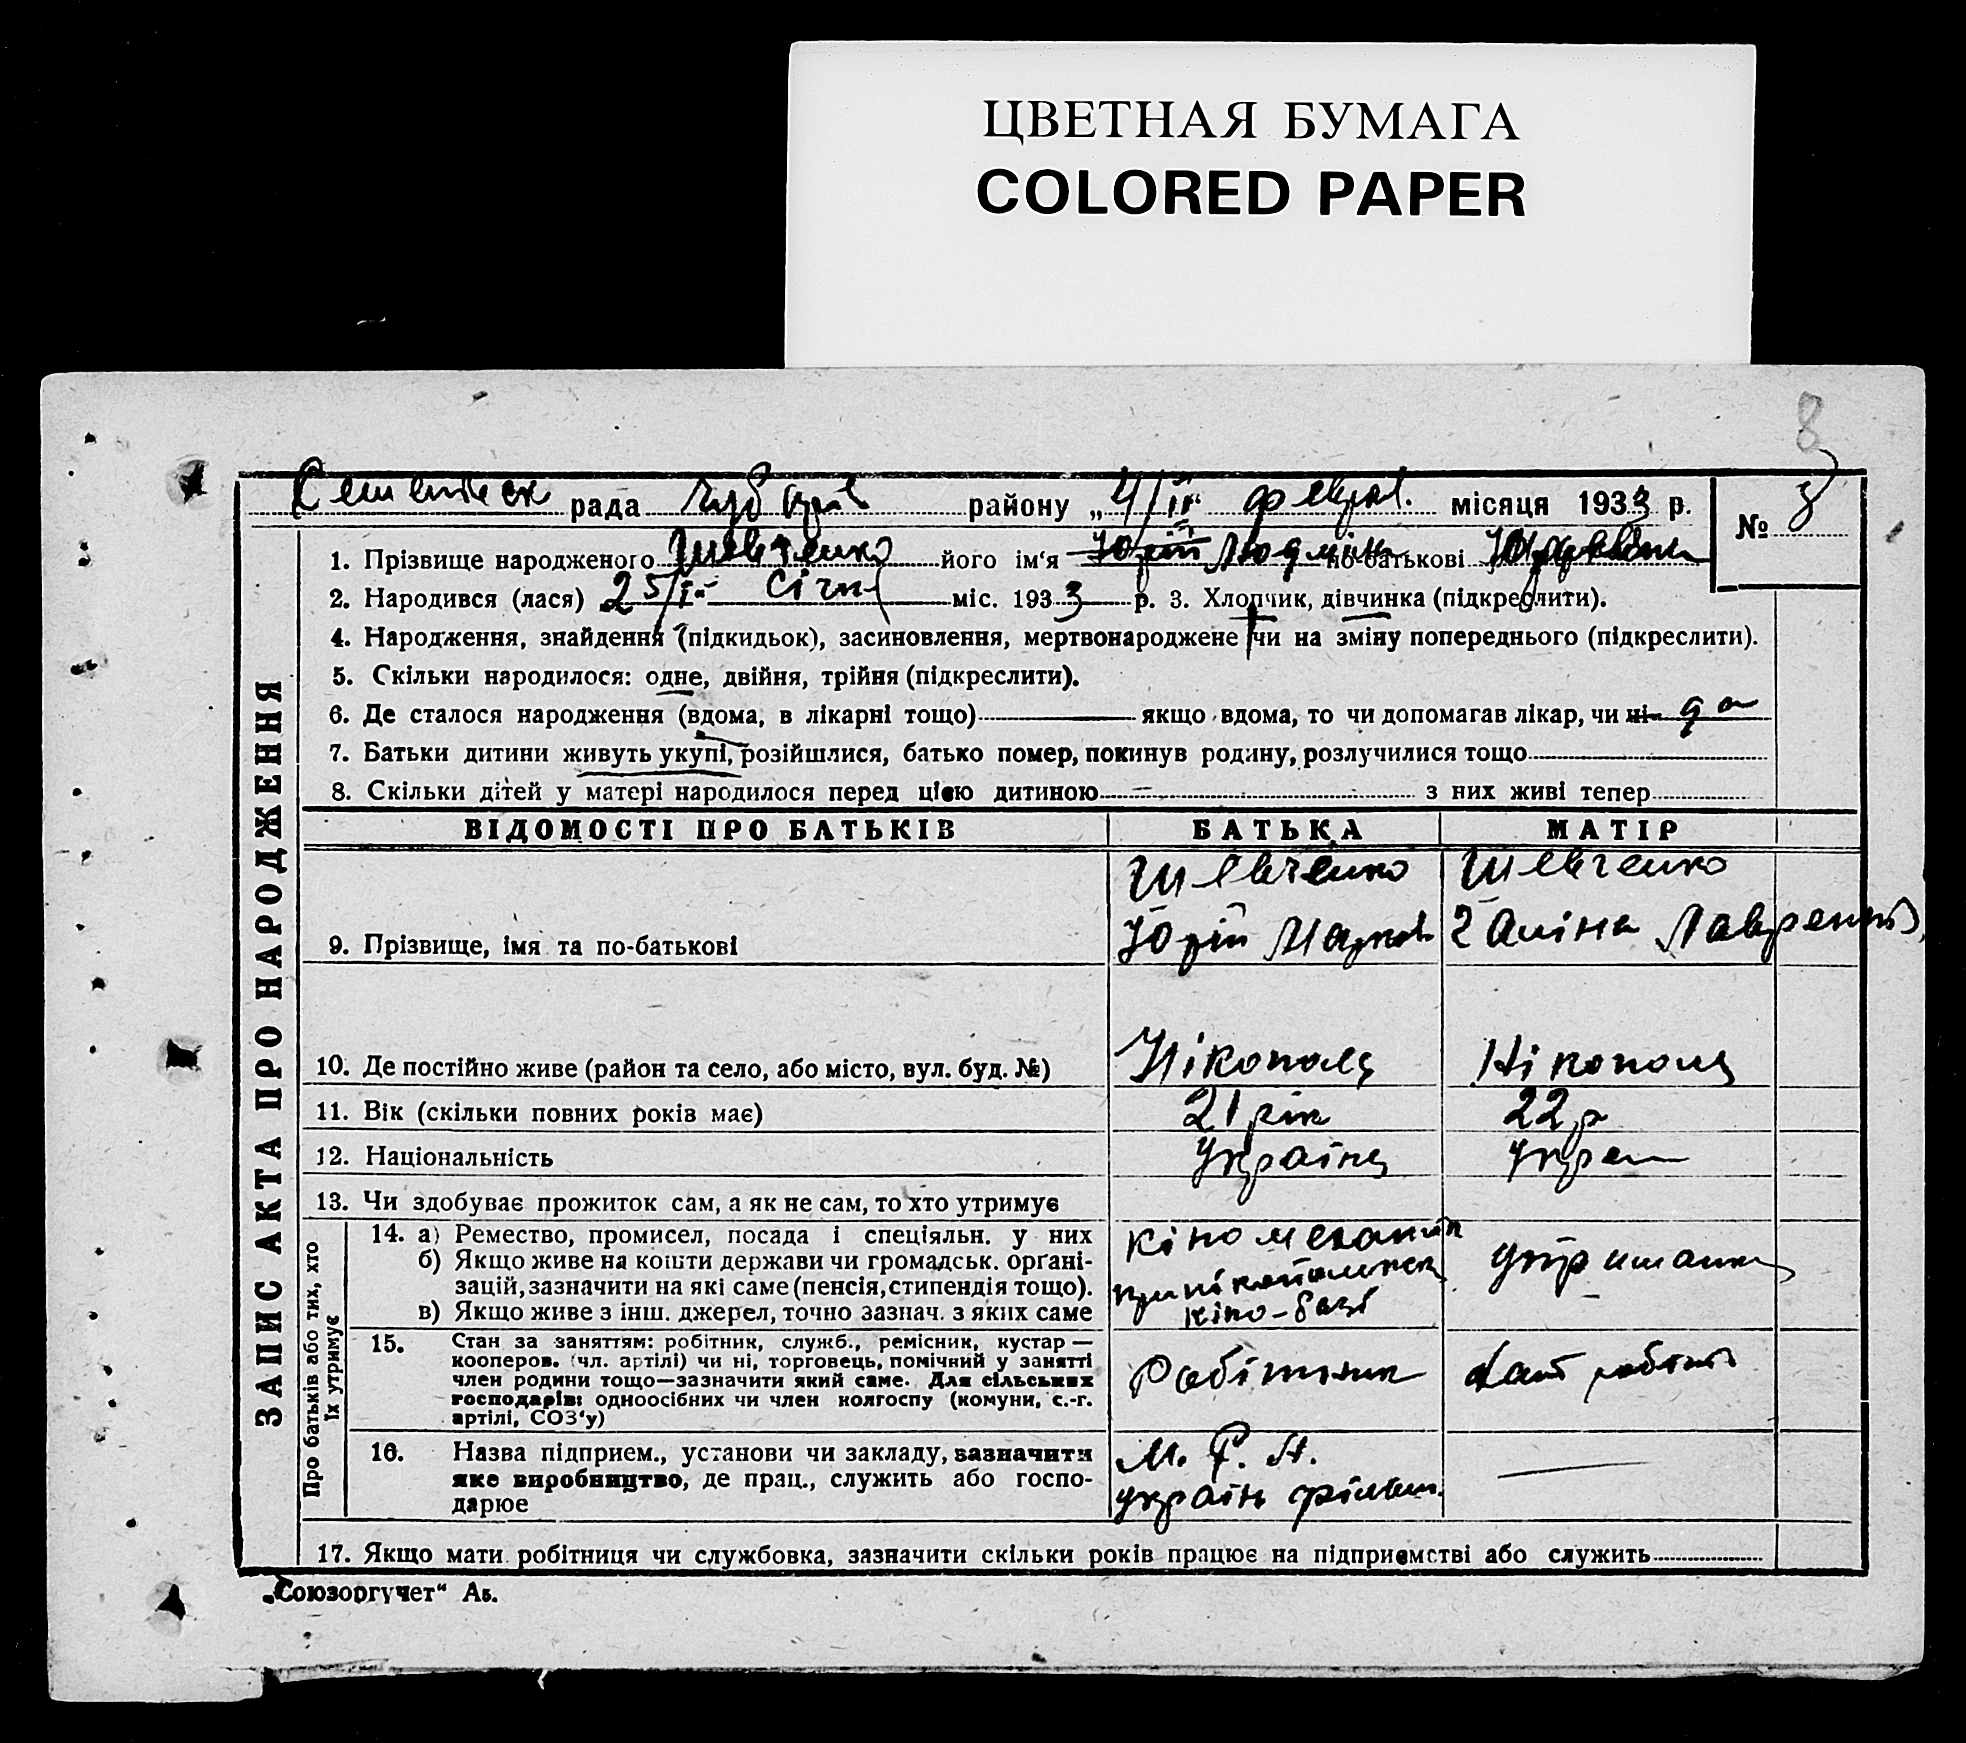 ЦВЕТНАЯ БУМАГА
COLORED PAPER
8
рада району „4/II“ феврал. місяця 1933 р.
№ 8
1. Прізвище народженого Шевченко його ім‘я Юрій Людміла по-батькові Юріївна
2. Народився (лася) 25/I- січня міс. 1933 р. 3. Хлопчик, дівчинка (підкреслити).
4. Народження, знайдення (підкидьок), засиновлення, мертвонароджене чи на зміну попереднього (підкреслити).
5. Скільки народилося: одне, двійня, трійня (підкреслити).
6. Де сталося народження (вдома, в лікарні тощо) якщо вдома, то чи допомагав лікар, чи ні да
7. Батьки дитини живуть укупі, розійшлися, батько помер, покинув родину, розлучилися тощо
8. Скільки дітей у матері народилося перед цією дитиною — з них живі тепер
ЗАПИС АКТА ПРО НАРОДЖЕННЯ
ВІДОМОСТІ ПРО БАТЬКІВ БАТЬКА МАТІР
Шевченко Шевченко
9. Прізвище, імя та по-батькові Юрій Марков Галіна Лаврентів
10. Де постійно живе (район та село, або місто, вул. буд. №) Нікополь Нікополь
11. Вік (скільки повних років має) 21 рік 22 р
12. Національність Українц Украін
13. Чи здобуває прожиток сам, а як не сам, то хто утримує
Про батьків або тих, хто їх утримує
14. а) Ремество, промисел, посада і спеціяльн. у них кіномеханик
б) Якщо живе на кошти держави чи громадськ. орґані-
зацій, зазначити на які саме (пенсія, стипендія тощо). при нікопольск утриманка
в) Якщо живе з інш. джерел, точно зазнач. з яких саме кіно-базі
15. Стан за заняттям: робітник, служб., ремісник, кустар —
кооперов. (чл. артілі) чи ні, торговець, помічний у занятті
член родини тощо—зазначити який саме. Для сільських Робітник робітн
господарів: одноосібних чи член колгоспу (комуни, с.-г.
артілі, СОЗ‘у)
16. Назва підприєм., установи чи закладу, зазначити М. Р. А.
яке виробництво, де прац., служить або госпо- україн фільм.
дарює
17. Якщо мати робітниця чи службовка, зазначити скільки років працює на підприємстві або служить
„Союзоргучет“ Аз.